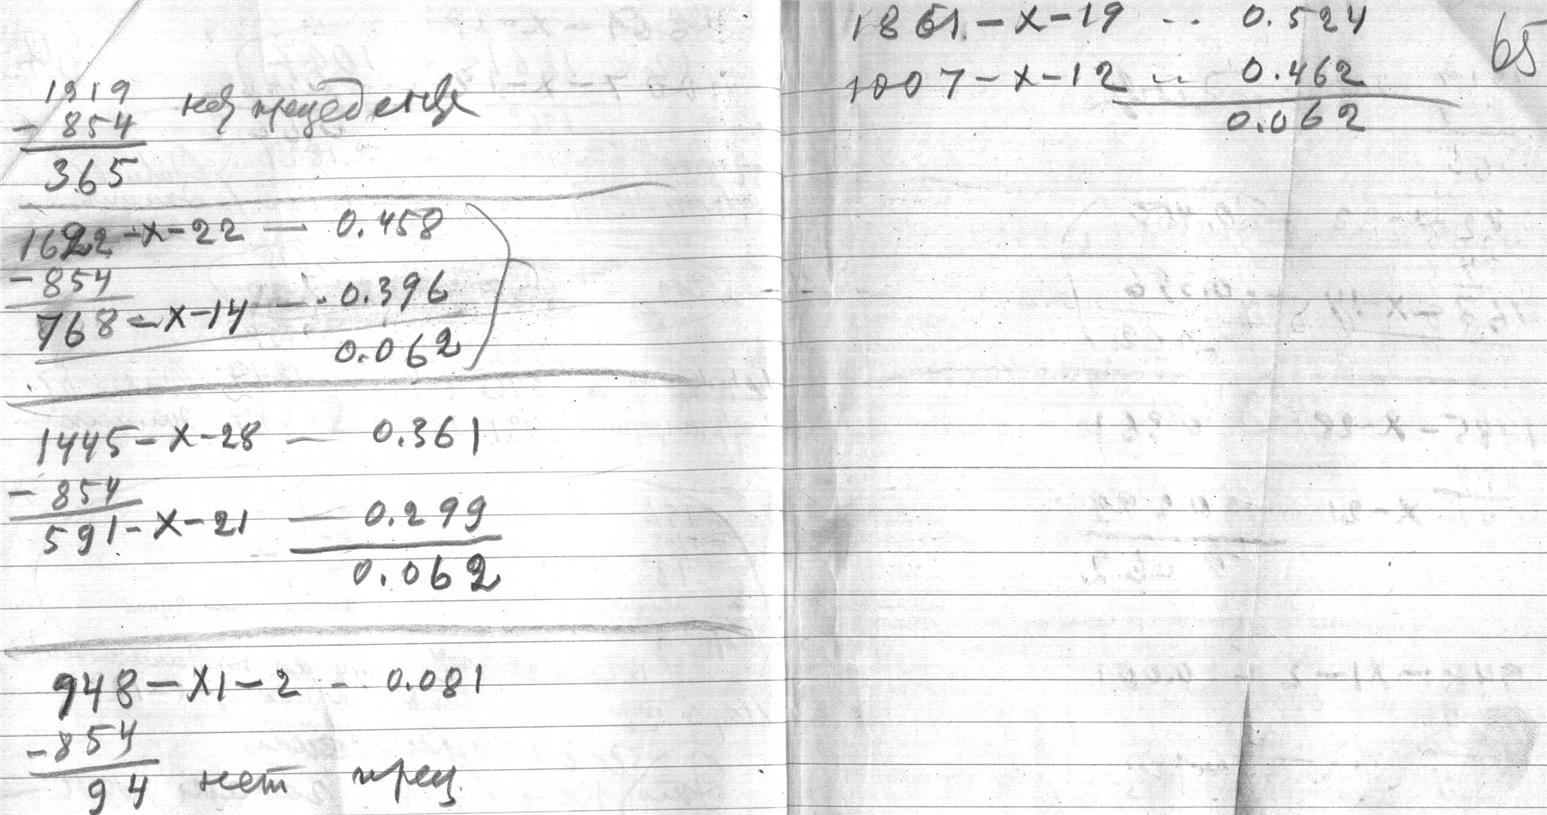 1219
- 854 нет прецедента
365
1622 - X - 22 — 0.458
- 854
768 - X - 14 — 0.396
0.062
1445 - X - 28 — 0.361
- 854
591 - X - 21 — 0.299
0.062
948 - XI - 2 - 0.081
- 854
94 нет прец.
65
1861 - X - 19 -- 0.524
1007 - X - 12 -- 0.462
0.062